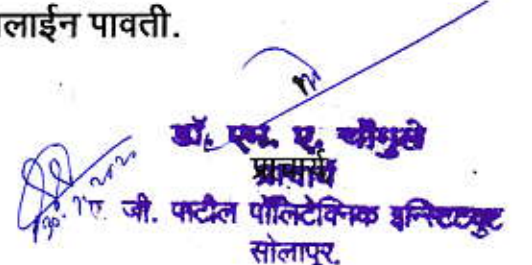 लाईन पावती.
डॉ. एम. ए. चौगुले
प्राचार्य
ए. जी. पाटील पॉलिटेक्निक इन्स्टिटयुट
सोलापूर.